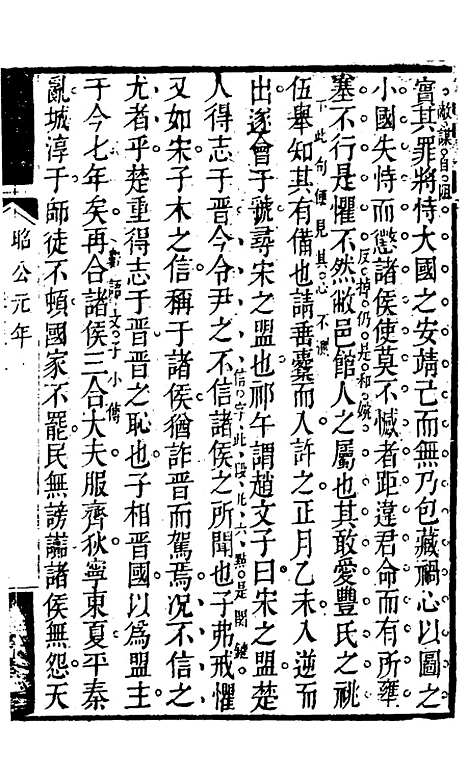 實其罪將恃大國之安靖己而無乃包藏禍心以圖之
敝謀自沮
小國失恃而懲諸侯使莫不憾者距違君命而有所壅
塞不行是懼不然敝邑館人之屬也其敢愛豐氏之祧
反掉仍是和婉
伍舉知其有備也請垂櫜而入許之正月乙未入逆而
下此句便見其心不測
出遂會于虢尋宋之盟也祁午謂趙文子曰宋之盟楚
人得志于晉今令尹之不信諸侯之所聞也子弗戒懼
信字此段此六點是關鍵
又如宋子木之信稱于諸侯猶詐晉而駕焉况不信之
尤者乎楚重得志于晉晉之恥也子相晉國以為盟主
于今七年矣再合諸侯三合大夫服齊秋寧東夏平秦
語文子小傳
亂城淳于師徒不頓國家不罷民無謗讟諸侯無怨天
昭公元年